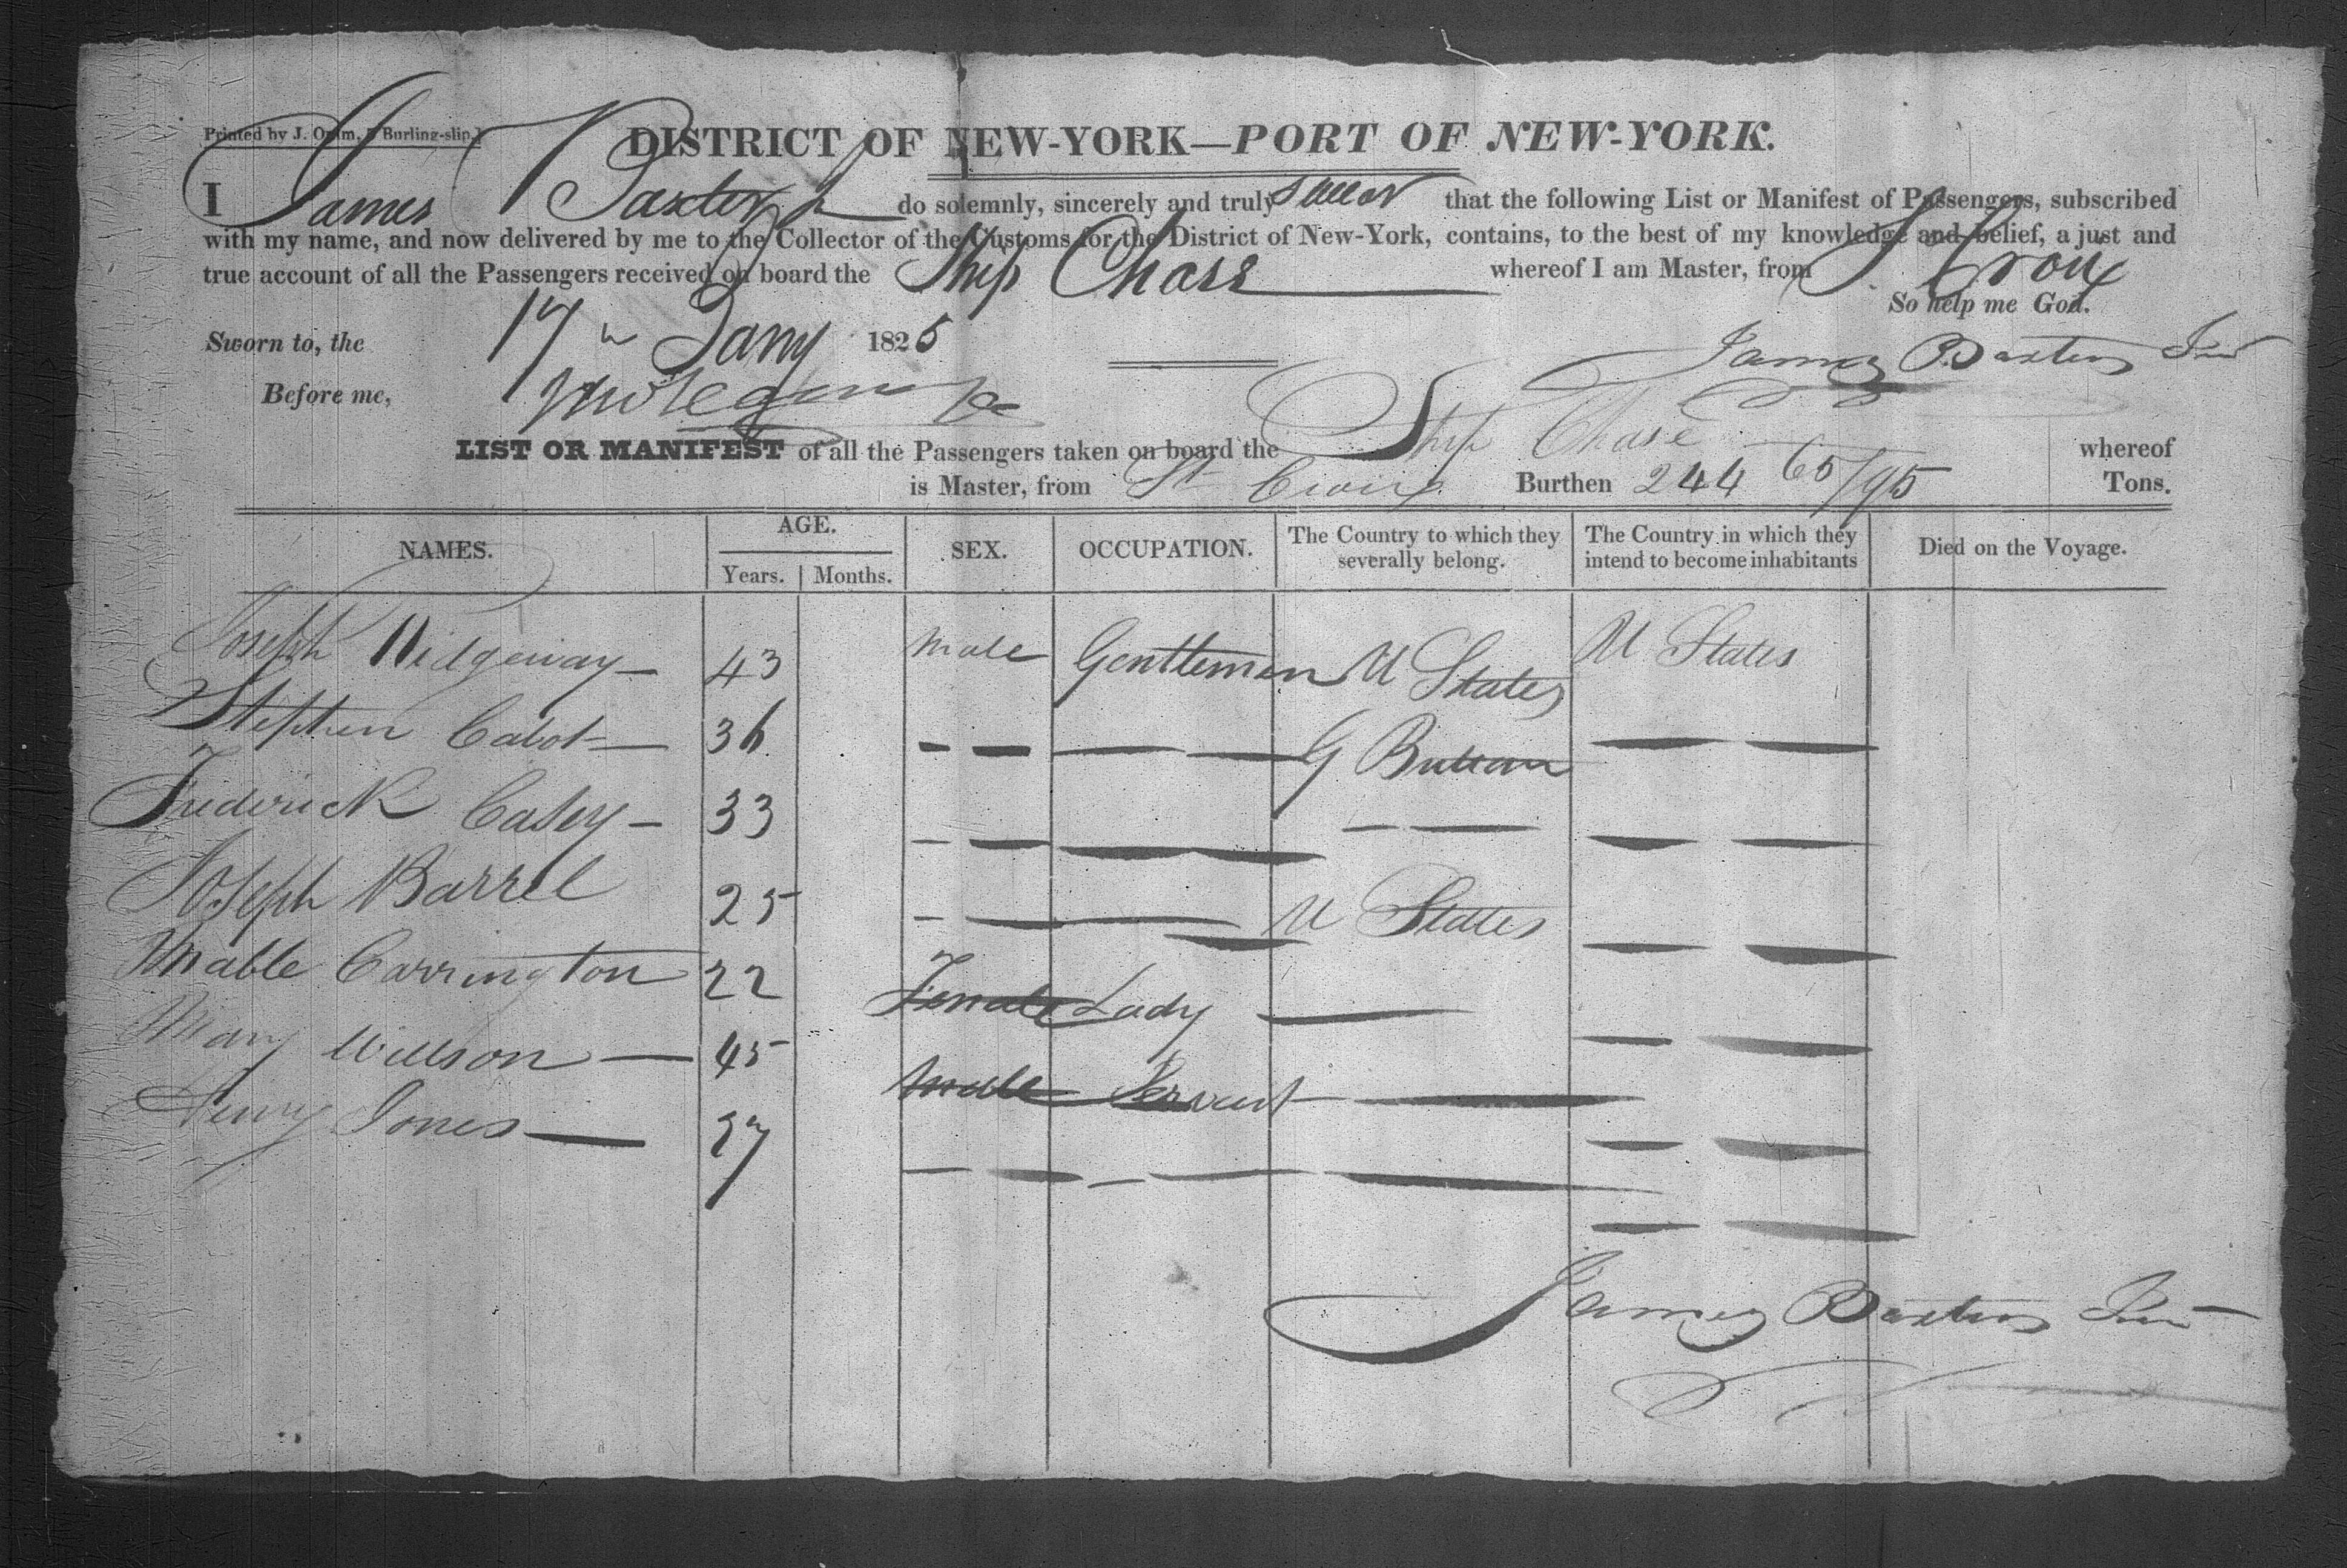 Printed by J. Oram, Burling-slip.]
DISTRICT OF NEW-YORK—PORT OF NEW-YORK.
I James Baxter Jr do solemnly, sincerely and truly swear that the following List or Manifest of Passengers, subscribed
with my name, and now delivered by me to the Collector of the Customs for the District of New-York, contains, to the best of my knowledge and belief, a just and
true account of all the Passengers received on board the Ship Chase whereof I am Master, from St Croix
So help me God.
Sworn to, the 17th Jany 1825
James Baxter Jun
Before me,
LIST OR MANIFEST of all the Passengers taken on board the Ship Chase whereof
is Master, from St Croix Burthen 244 65/95 Tons.
NAMES. AGE. SEX. OCCUPATION. The Country to which they severally belong. The Country in which they intend to become inhabitants Died on the Voyage.
Years. Months.
Joseph Ridgeway — 43 Male Gentlemen U States U States
Stephen Cabot — 36 — — — — G Britain — —
Frederick Casey — 33 — — — — — — — —
Joseph Barrel 25 — — — — U States — —
Mable Carrington 22 Female Lady — — —
Mary Willson — 45 — —
Henry Jones — 27 Male Servant — — — —
James Baxter Jun